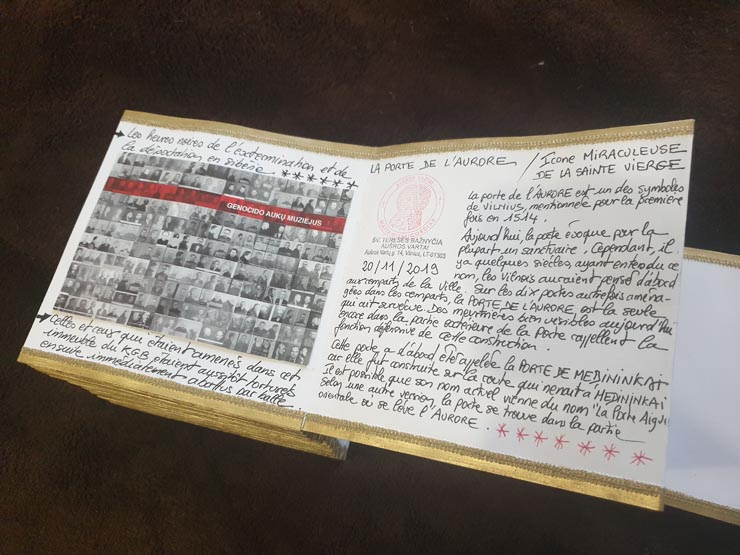 Les heures noires de l'extermination et de
la déportation en sibérie ******
GENOCIDO AUKŲ MUZIEJUS
Celles et ceux qui étaient amenés dans cet
immeuble du KGB étaient aussitôt torturés
ensuite immédiatement abattus par balle.
LA PORTE DE L'AURORE / Icone MIRACULEUSE
DE LA SAINTE VIERGE
ŠV. TERESĖS BAŽNYČIA
AUŠROS VARTAI
Aušros Vartų g. 14, Vilnius, LT-01303
20/11/2019
La porte de l'AURORE est un des symboles
de Vilnius, mentionnée pour la première
fois en 1514.
Aujourd'hui, la porte évoque pour la
plupart un sanctuaire. Cependant, il
y a quelques siècles, ayant entendu ce
nom, les Vilnois auraient pensé d'abord
aux remparts de la Ville. Sur les dix portes autrefois aména-
gées dans les remparts, la PORTE DE L'AURORE est la seule
qui ait survécue. Des meurtrières bien visibles aujourd'hui
encore dans la partie extérieure de la Porte rappellent la
fonction défensive de cette construction.
Cette porte a d'abord été appelée la PORTE DE MEDININKAI
car elle fut construite sur la route qui menait à MEDININKAI
Il est possible que son nom actuel vienne du nom "la Porte Aiguë
selon une autre version, la porte se trouve dans la partie
orientale où se lève l'AURORE. *******